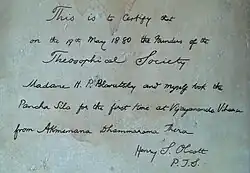 This is to Certify that
on the 19th May 1880 the Founders of the
Theosophical Society
Madame H. P. Blavatsky and myself took the
Pancha Sila for the first time at Vijayananda Vihara
from Akmimana Dhammarama Thera
Henry S. Olcott
P.T.S.